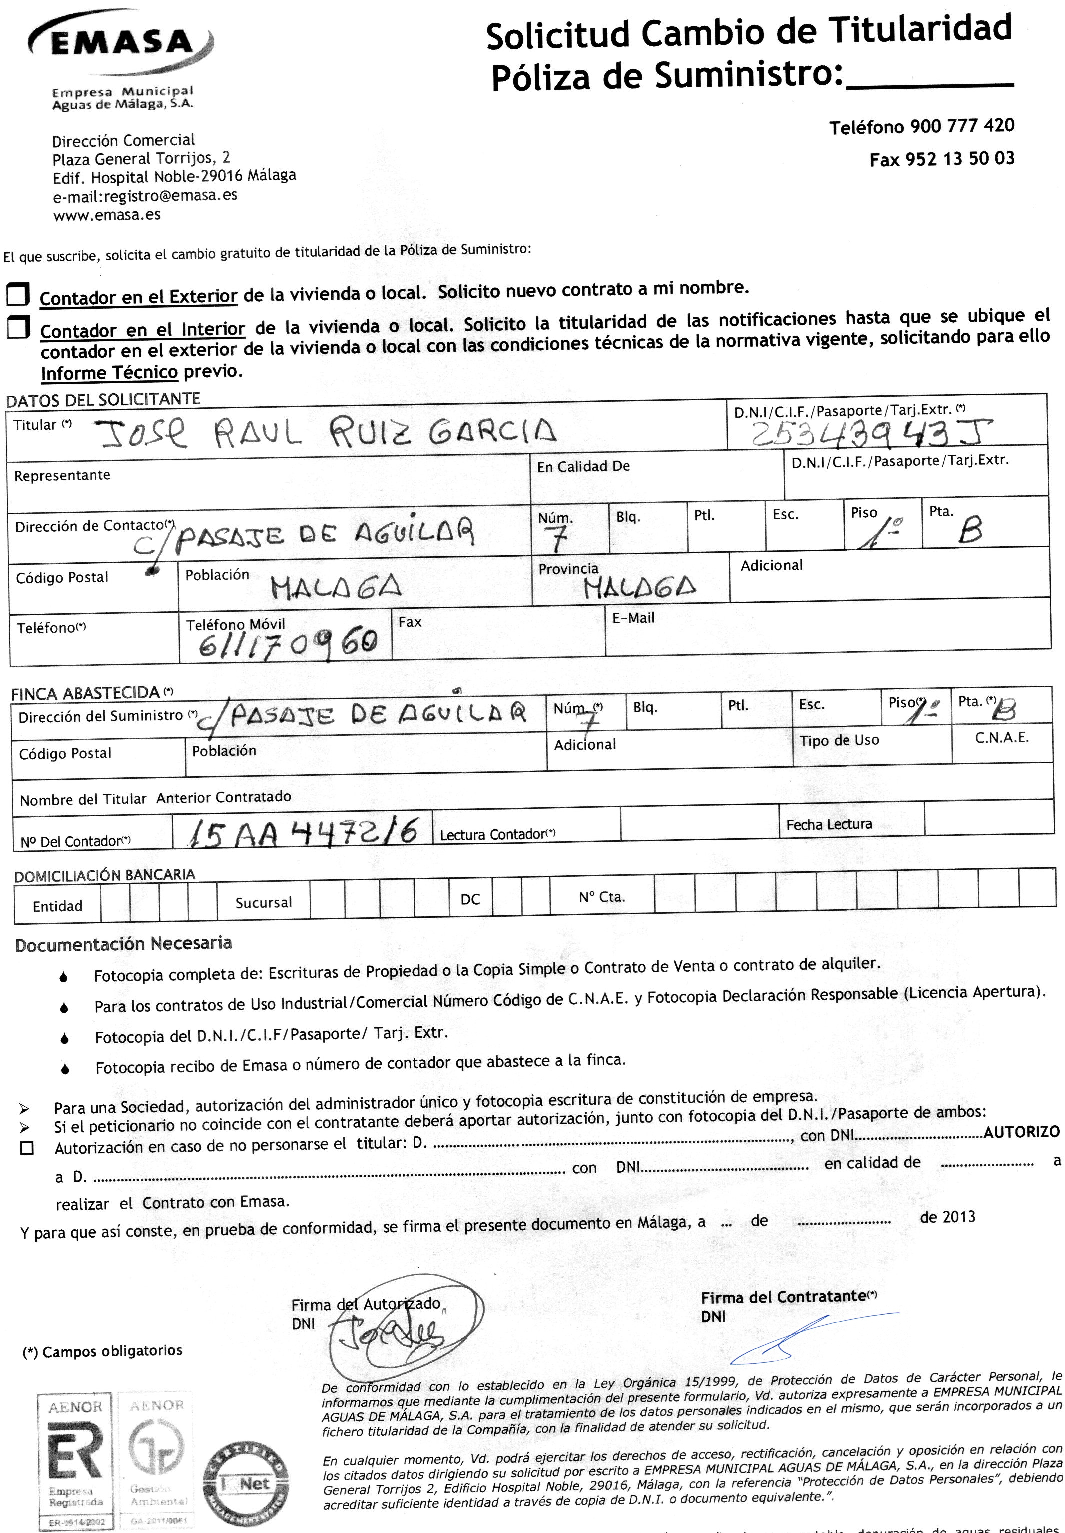 EMASA
Empresa Municipal
Aguas de Málaga, S.A.
Solicitud Cambio de Titularidad
Póliza de Suministro:
Teléfono 900 777 420
Fax 952 13 50 03
Dirección Comercial
Plaza General Torrijos, 2
Edif. Hospital Noble-29016 Málaga
e-mail:registro@emasa.es
www.emasa.es
El que suscribe, solicita el cambio gratuito de titularidad de la Póliza de Suministro:
Contador en el Exterior de la vivienda o local. Solicito nuevo contrato a mi nombre.
Contador en el Interior de la vivienda o local. Solicito la titularidad de las notificaciones hasta que se ubique el
contador en el exterior de la vivienda o local con las condiciones técnicas de la normativa vigente, solicitando para ello
Informe Técnico previo.
DATOS DEL SOLICITANTE
Titular (*) JOSE RAUL RUIZ GARCIA D.N.I/C.I.F./Pasaporte/Tarj.Extr. (*) 25343943J
Representante En Calidad De D.N.I/C.I.F./Pasaporte/Tarj.Extr.
Dirección de Contacto(*) C/ PASAJE DE AGUILAR Núm. 7 Blq. Ptl. Esc. Piso 1º Pta. B
Código Postal Población MALAGA Provincia MALAGA Adicional
Teléfono(*) Teléfono Móvil 611170960 Fax E-Mail
FINCA ABASTECIDA (*)
Dirección del Suministro (*) C/ PASAJE DE AGUILAR Núm. (*) 7 Blq. Ptl. Esc. Piso(*) 1º Pta. (*) B
Código Postal Población Adicional Tipo de Uso C.N.A.E.
Nombre del Titular Anterior Contratado
Nº Del Contador(*) 15AA447216 Lectura Contador(*) Fecha Lectura
DOMICILIACIÓN BANCARIA
Entidad Sucursal DC Nº Cta.
Documentación Necesaria
Fotocopia completa de: Escrituras de Propiedad o la Copia Simple o Contrato de Venta o contrato de alquiler.
Para los contratos de Uso Industrial/Comercial Número Código de C.N.A.E. y Fotocopia Declaración Responsable (Licencia Apertura).
Fotocopia del D.N.I./C.I.F/Pasaporte/ Tarj. Extr.
Fotocopia recibo de Emasa o número de contador que abastece a la finca.
Para una Sociedad, autorización del administrador único y fotocopia escritura de constitución de empresa.
Si el peticionario no coincide con el contratante deberá aportar autorización, junto con fotocopia del D.N.I./Pasaporte de ambos:
Autorización en caso de no personarse el titular: D. ............, con DNI............AUTORIZO
a D. ............ con DNI............ en calidad de ............ a
realizar el Contrato con Emasa.
Y para que así conste, en prueba de conformidad, se firma el presente documento en Málaga, a ... de ............ de 2013
Firma del Autorizado
DNI
Firma del Contratante(*)
DNI
(*) Campos obligatorios
De conformidad con lo establecido en la Ley Orgánica 15/1999, de Protección de Datos de Carácter Personal, le
informamos que mediante la cumplimentación del presente formulario, Vd. autoriza expresamente a EMPRESA MUNICIPAL
AGUAS DE MÁLAGA, S.A. para el tratamiento de los datos personales indicados en el mismo, que serán incorporados a un
fichero titularidad de la Compañía, con la finalidad de atender su solicitud.
En cualquier momento, Vd. podrá ejercitar los derechos de acceso, rectificación, cancelación y oposición en relación con
los citados datos dirigiendo su solicitud por escrito a EMPRESA MUNICIPAL AGUAS DE MÁLAGA, S.A., en la dirección Plaza
General Torrijos 2, Edificio Hospital Noble, 29016, Málaga, con la referencia "Protección de Datos Personales", debiendo
acreditar suficiente identidad a través de copia de D.N.I. o documento equivalente.".
AENOR
ER
Empresa
Registrada
ER-0514/2002
AENOR
Gestión
Ambiental
GA-2011/0061
Net
depuración de aguas residuales,